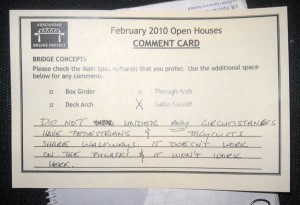 KOSCIUSZKO
BRIDGE PROJECT
February 2010 Open Houses
COMMENT CARD
BRIDGE CONCEPTS
Please check the Main Span option(s) that you prefer. Use the additional space
below for any comments.
Box Girder
Through Arch
Deck Arch
X Cable-Stayed
DO NOT UNDER ANY CIRCUMSTANCES
HAVE PEDESTRIANS & BICYCLISTS
SHARE WALKWAYS. IT DOESN'T WORK
ON THE PULASKI & IT WON'T WORK
HERE.